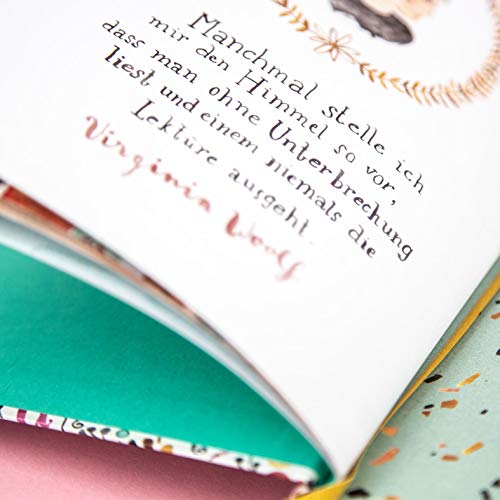 Manchmal stelle ich
mir den Himmel so vor,
dass man ohne Unterbrechung
liest und einem niemals die
Lektüre ausgeht.
Virginia Woolf